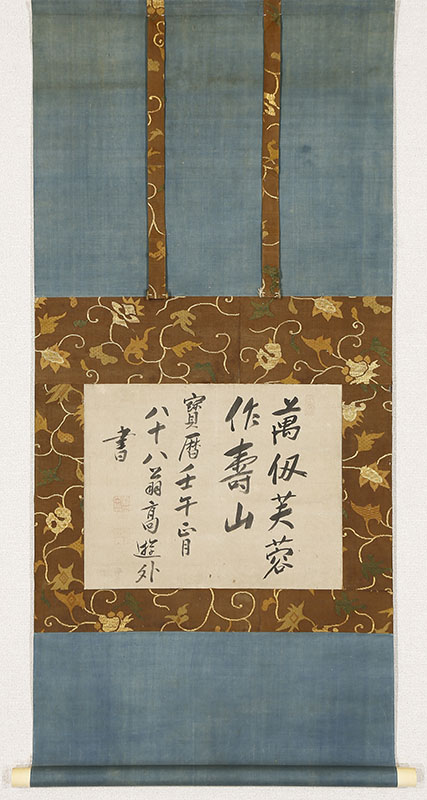 萬仭芙蓉
作壽山
寶曆壬午正月
八十八翁高遊外
書